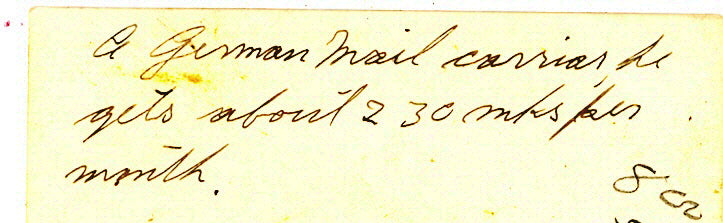 A German Mail carrier, he
gets about 230 mks per
month.
80